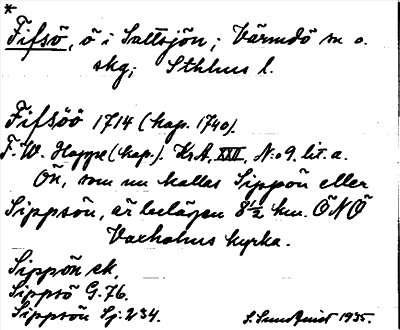 *
Fifsö, ö i Saltsjön; Värmdö sn o.
skg; Sthlms l.
Fifsöö 1714 (kop. 1740).
F. W. Hoppe (kop.). KrA, XXII, N:o 9. lit. a.
Ön, som nu kallas Sippön eller
Sippsön, är belägen 8 1/2 km. ÖNÖ
Vaxholms kyrka.
Sippön ek.
Sippsö G. 76.
Sippsön Sj. 234.
S. Sundquist 1935.